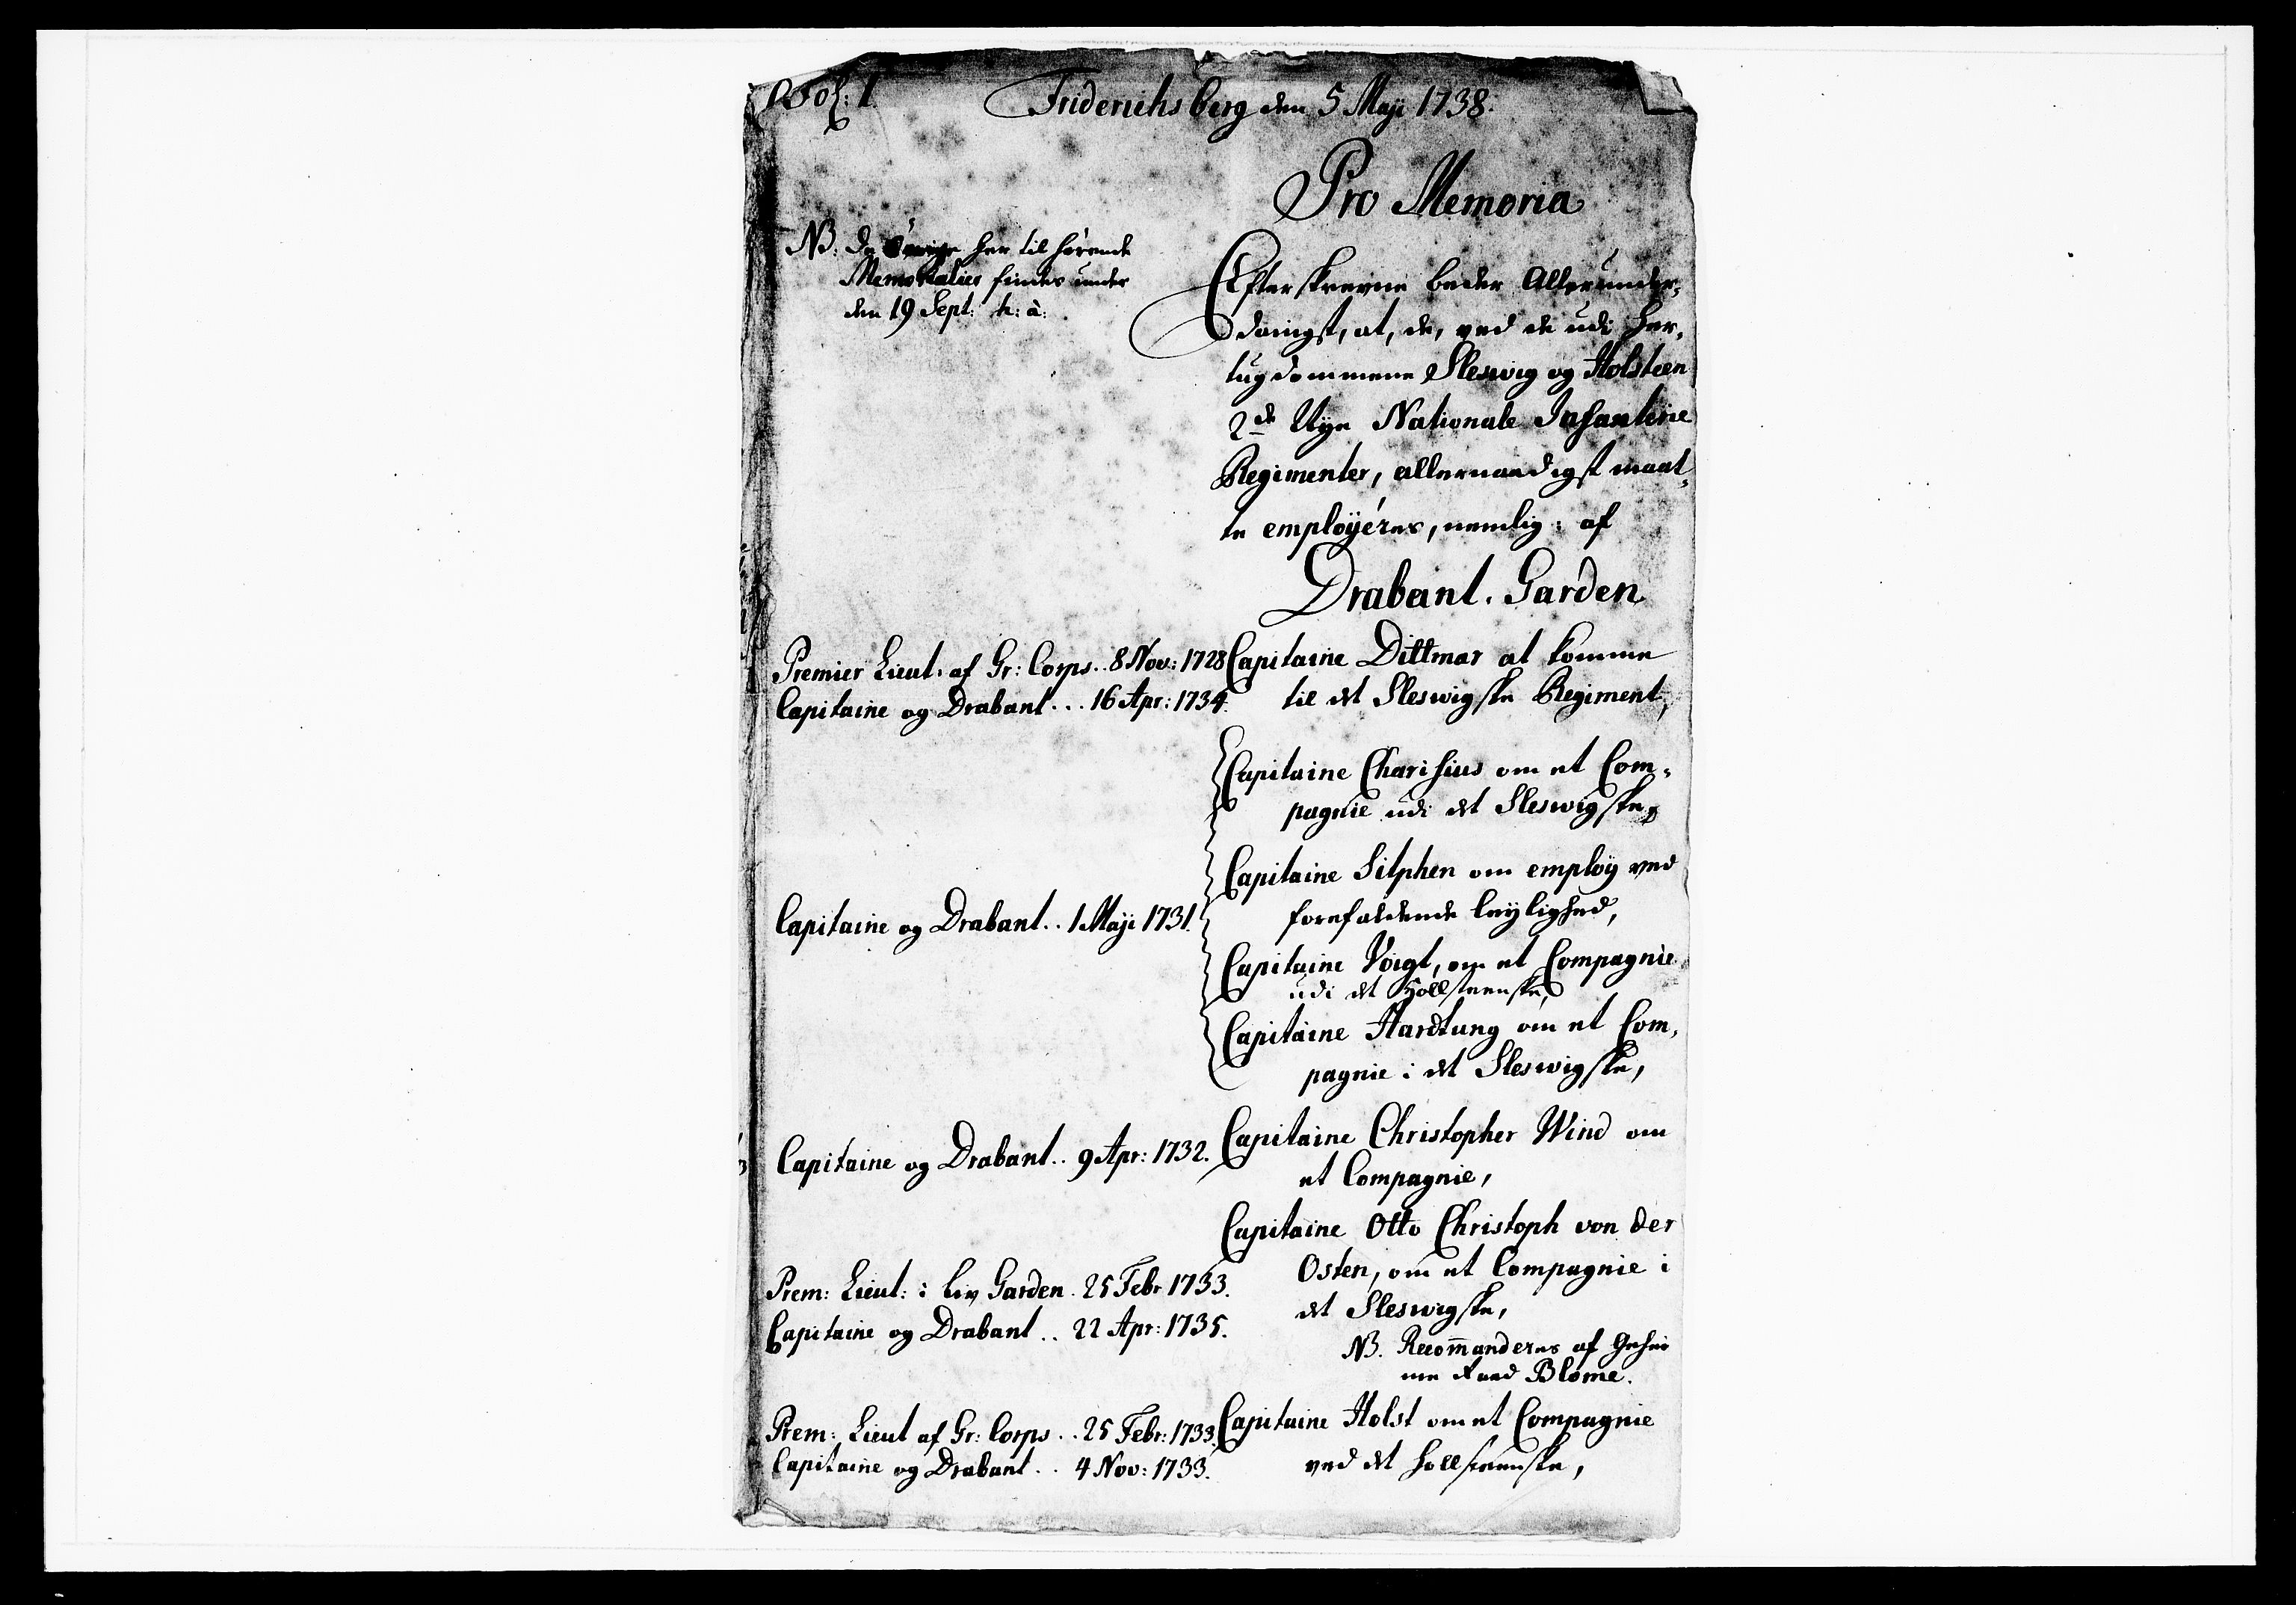 Fol: 1
Friderichsberg den 5 Maji 1738.
Pro Memoria
NB: De Øvrige her til hørende
Memorialier findes under
den 19 Sept: h: a:
Efterskrevne beder Allerunder-
danigst, at, de, ved de udi Her-
tugdømmene Sleswig og Holsteen
2de Nye Nationale Infanterie
Regimenter, allernaadigst maat-
te employéres, nemlig: af
Drabant. Garden
Premier Lieut: af Gr: Corps.. 8 Nov: 1728
Capitaine og Drabant... 16 Apr: 1734.
Capitaine Dittmar at komme
til det Sleswigske Regiment,
Capitaine Charisius om et Com-
pagnie udi det Sleswigske,
Capitaine og Drabant.. 1 Maji 1731.
Capitaine Silphen om employ ved
forefaldende leylighed,
Capitaine Voigt, om et Compagnie
udi det Hollsteenske,
Capitaine Hardtung om et Com-
pagnie i det Sleswigske,
Capitaine og Drabant.. 9 Apr: 1732.
Capitaine Christopher Wind om
et Compagnie,
Prem: Lieut: i Liv Garden. 25 Febr 1733.
Capitaine og Drabant.. 22 Apr: 1735.
Capitaine Otto Christoph von der
Osten, om et Compagnie i
det Sleswigske,
NB. Recom̄anderes af Gehei
me Raad Blome.
Prem: Lieut af Gr: Corps.. 25 Febr: 1733.
Capitaine og Drabant.. 4 Nov: 1733.
Capitaine Holst om et Compagnie
ved det Hollsteenske,